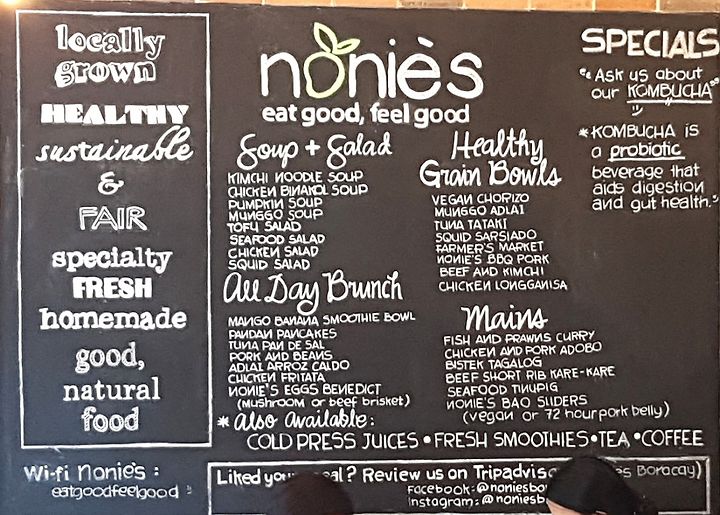 locally
grown
HEALTHY
sustainable
&
FAIR
specialty
FRESH
homemade
good,
natural
food
Wi-fi Nonie's :
eatgoodfeelgood
noniès
eat good, feel good
Soup + Salad
KIMCHI NOODLE SOUP
CHICKEN BINAKOL SOUP
PUMPKIN SOUP
MUNGGO SOUP
TOFU SALAD
SEAFOOD SALAD
CHICKEN SALAD
SQUID SALAD
All Day Brunch
MANGO BANANA SMOOTHIE BOWL
PANDAN PANCAKES
TUNA PAN DE SAL
PORK AND BEANS
ADLAI ARROZ CALDO
CHICKEN FRITATA
NONIE'S EGGS BENEDICT
(MUSHROOM or beef brisket)
Healthy
Grain Bowls
VEGAN CHORIZO
MUNGGO ADLAI
TUNA TATAKI
SQUID SARSIADO
FARMER'S MARKET
NONIE'S BBQ PORK
BEEF AND KIMCHI
CHICKEN LONGGANISA
Mains
FISH AND PRAWNS CURRY
CHICKEN AND PORK ADOBO
BISTEK TAGALOG
BEEF SHORT RIB KARE-KARE
SEAFOOD TINUPIG
NONIE'S BAO SLIDERS
(vegan or 72 hour pork belly)
* Also Available :
COLD PRESS JUICES • FRESH SMOOTHIES • TEA • COFFEE
SPECIALS
"Ask us about
our KOMBUCHA"
* KOMBUCHA is
a probiotic
beverage that
aids digestion
and gut health.
Liked your meal? Review us on Boracay)
Facebook: @
Instagram: @